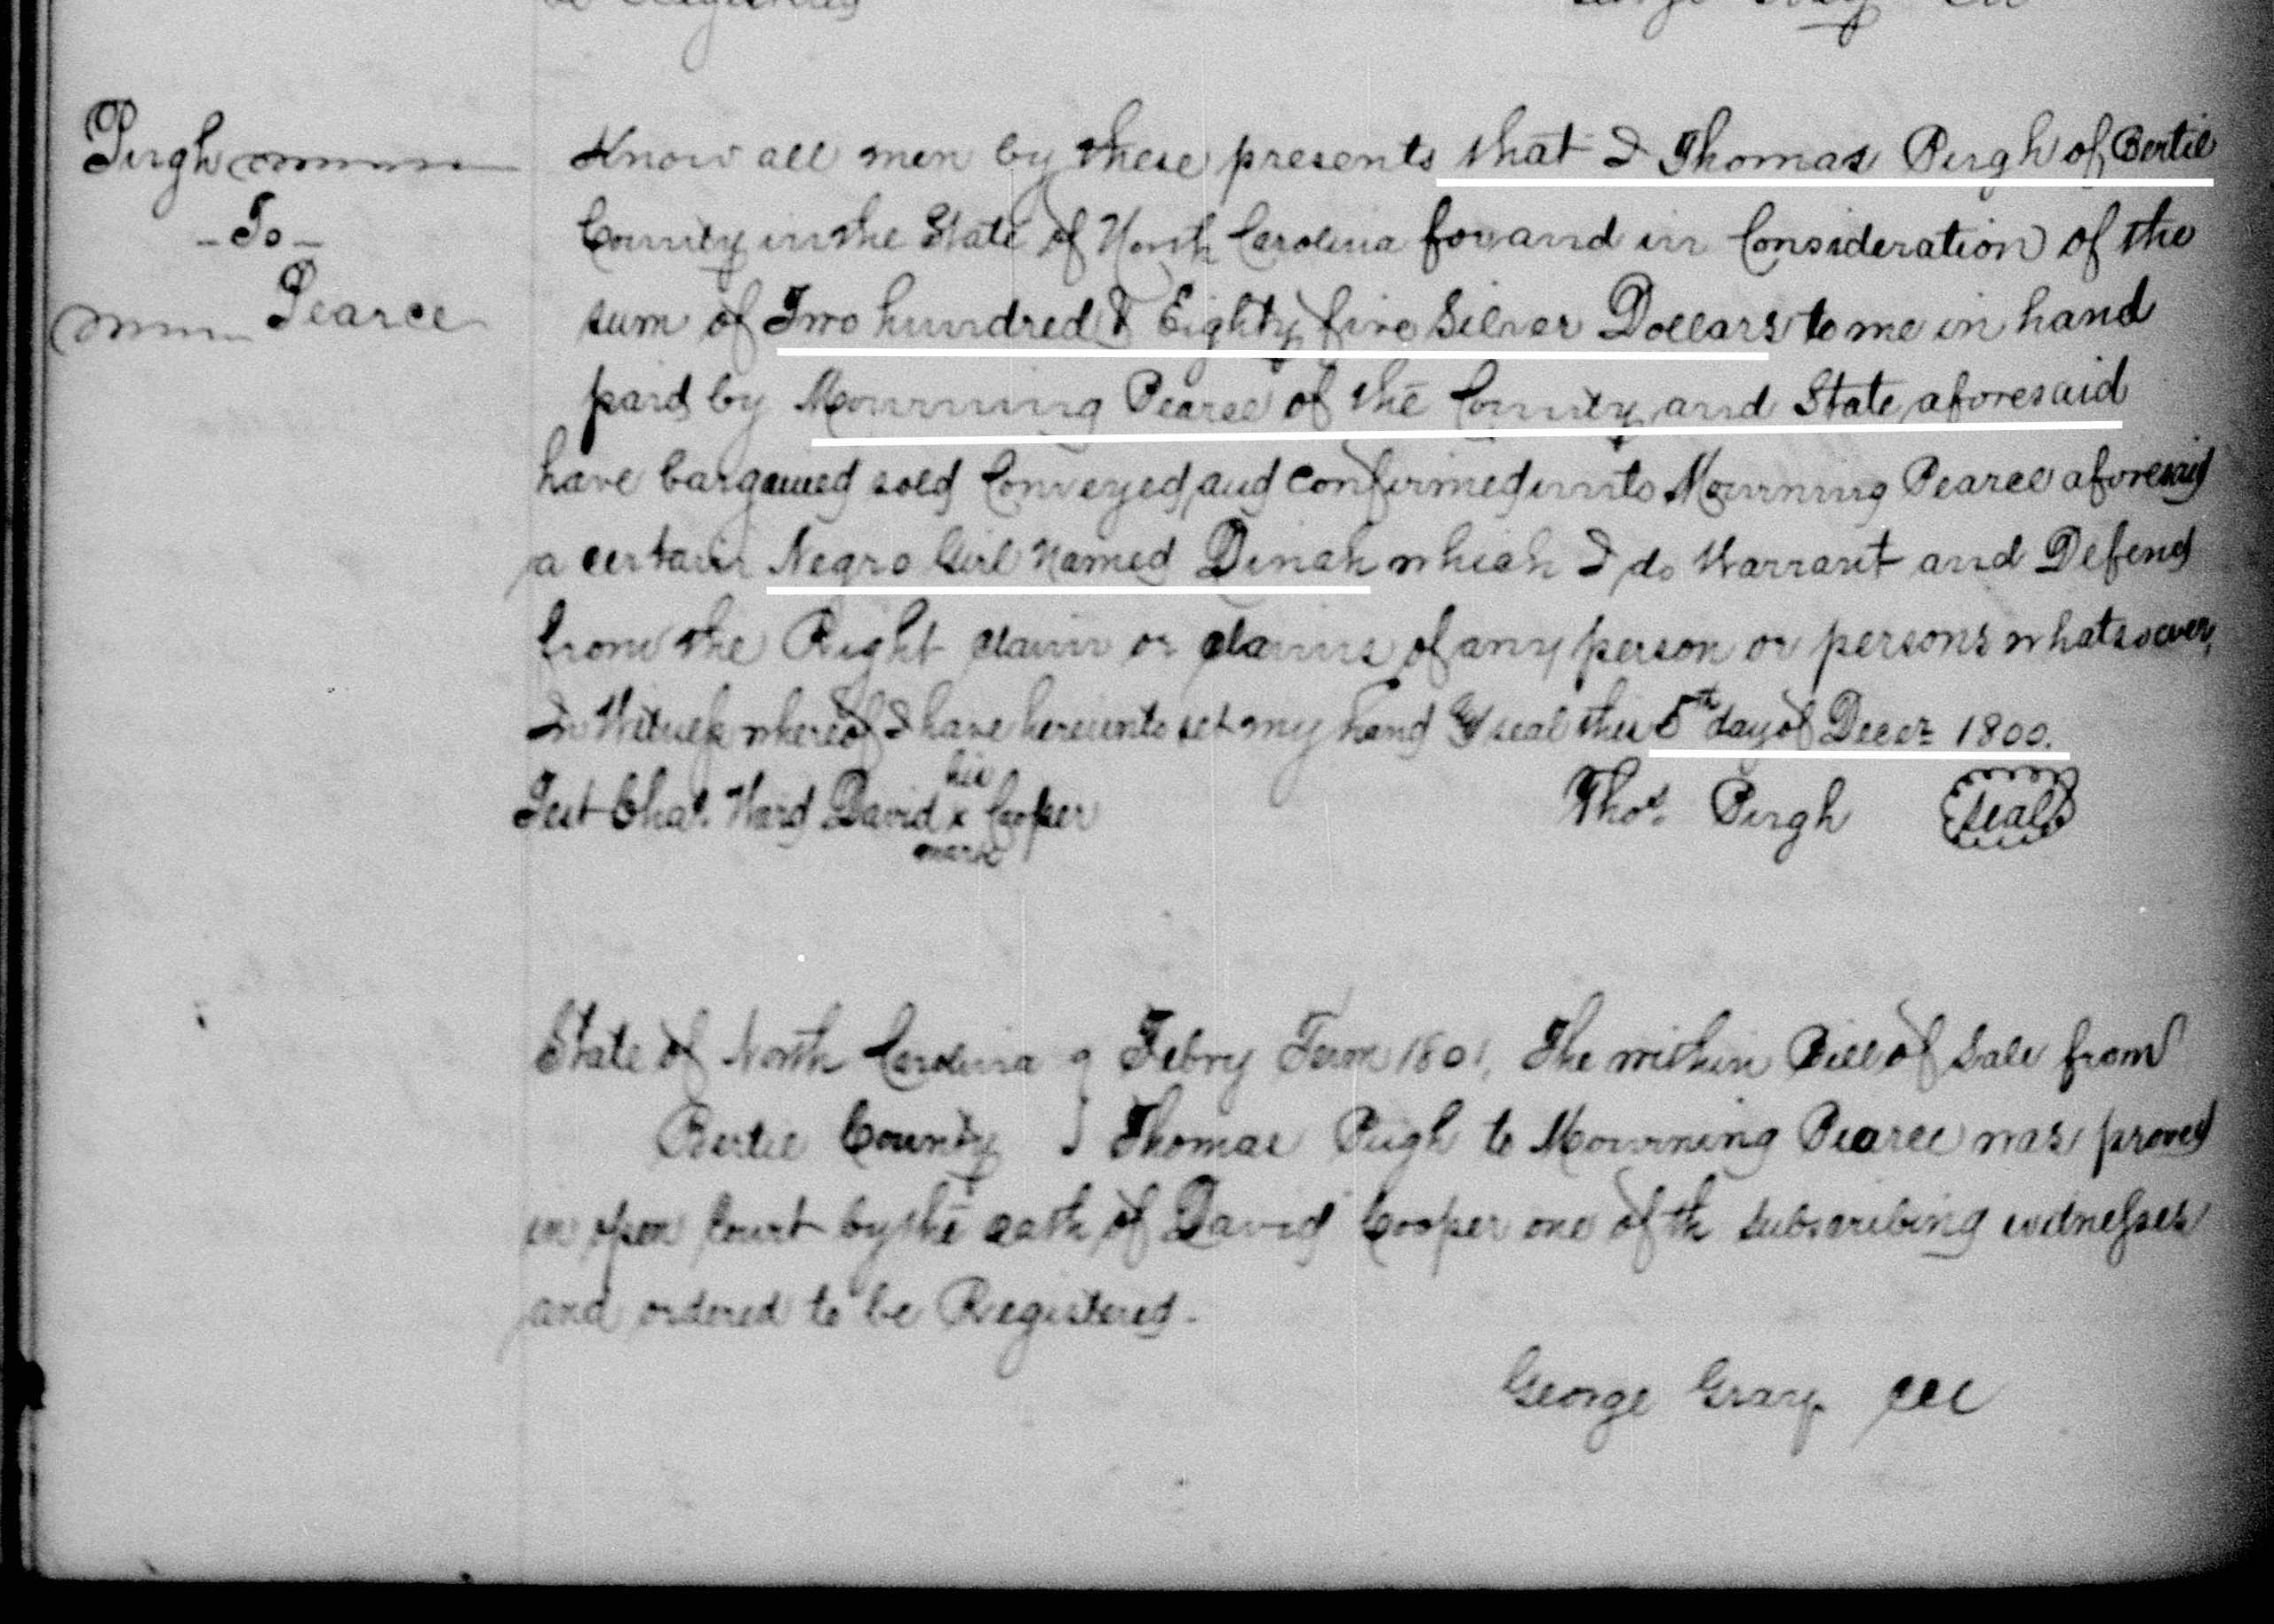 Pugh
- To -
Pearce
Know all men by these presents that I Thomas Pugh of Bertie
County in the State of North Carolina for and in Consideration of the
sum of Two hundred & Eighty five Silver Dollars to me in hand
paid by Mourning Pearce of the County and State aforesaid
have bargained sold Conveyed and confirmed unto Mourning Pearce aforesaid
a certain Negro Girl Named Dinah which I do Warrant and Defend
from the Right claim or claims of any person or persons whatsoever,
In Witness whereof I have hereunto set my hand & seal this 5th day of Decer 1800.
his
Test Chas. Ward David x Cooper Thos. Pugh seal
mark
State of North Carolina Febry Term 1801, The within Bill of Sale from
Bertie County } Thomas Pugh to Mourning Pearce was proved
in open Court by the oath of David Cooper one of th subscribing witnesses
and ordered to be Registered.
George Gray CCC